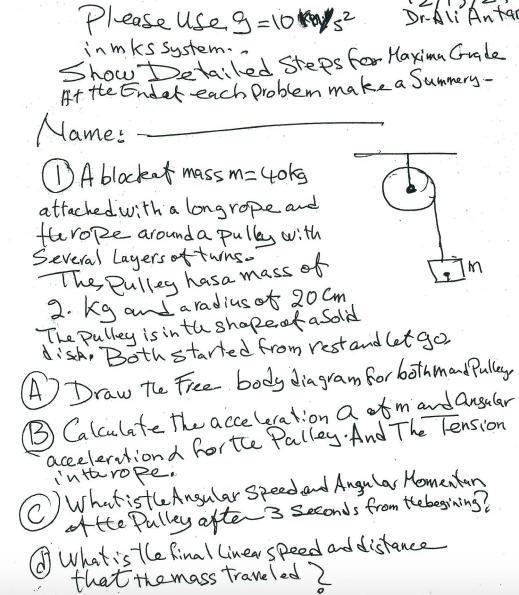 Please use g = 10 m/s²
Dr. Ali Antar
in mks system..
Show Detailed Steps for Maximum Grade
At the End of each Problem make a Summery -
Name:
① A block of mass m = 40 kg
attached with a long rope and
the rope around a pulley with
Several Layers of turns.
The Pulley has a mass of
2. kg and a radius of 20 Cm
The Pulley is in the shape of a Solid
disk. Both started from rest and let go
m
Ⓐ Draw the Free body diagram for both m and Pulley.
Ⓑ Calculate the acceleration a of m and angular
acceleration α for the Pulley. And The Tension
in the rope.
Ⓒ What is the Angular Speed and Angular Momentum
of the Pulley after 3 seconds from the begining?
ⓓ What is the final linear speed and distance
that the mass traveled?